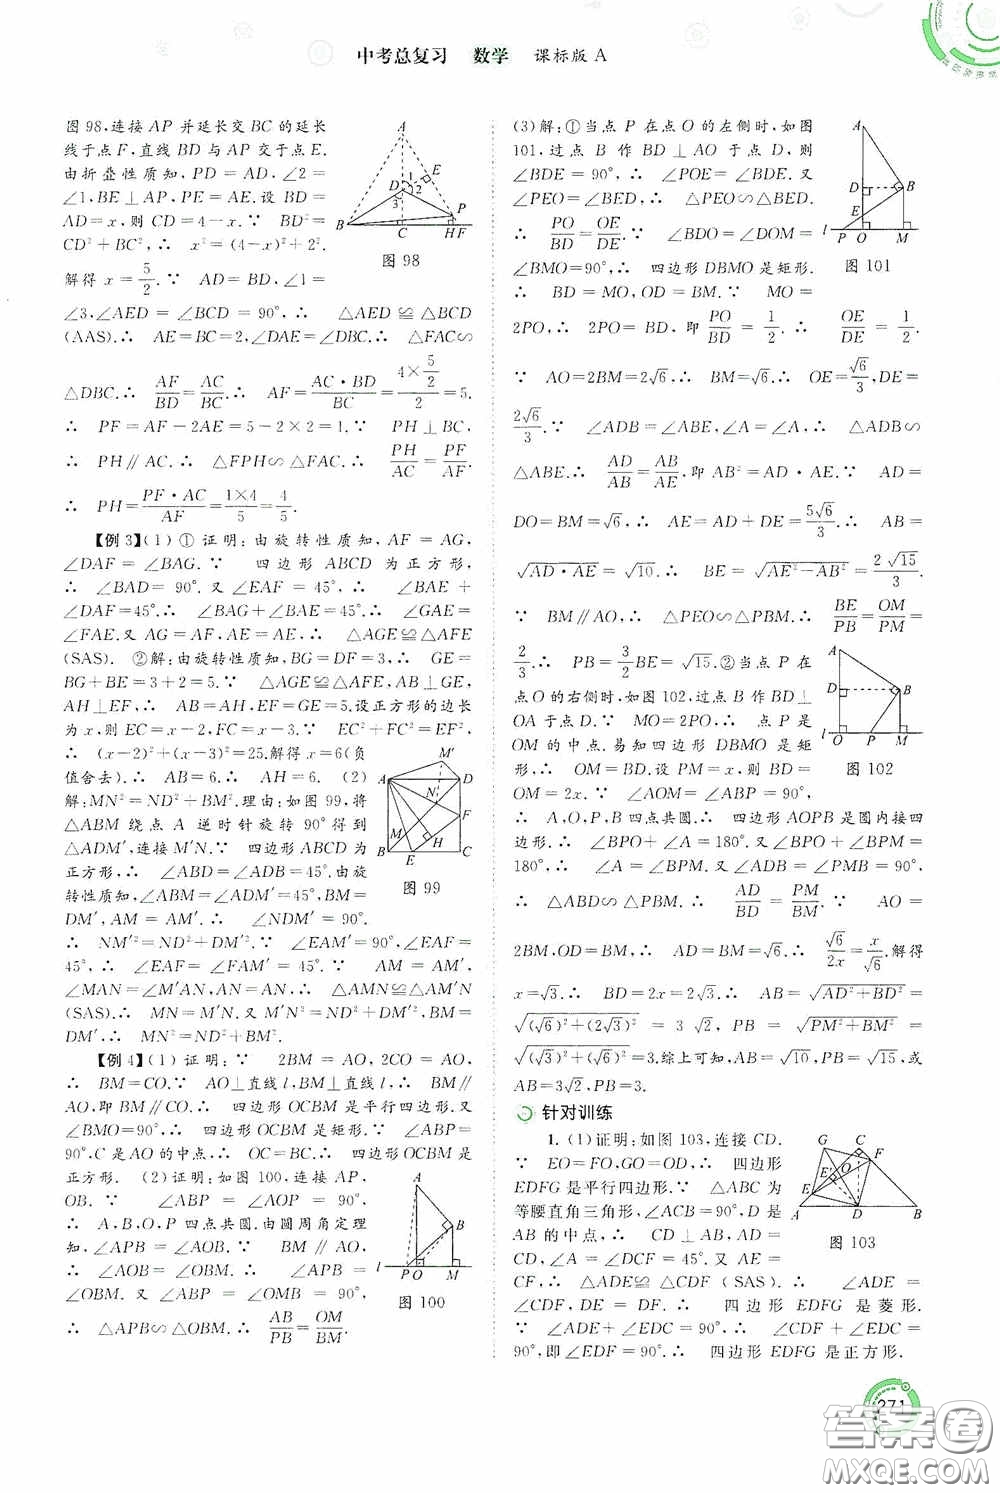 中考总复习 数学 课标版 A
图 98,连接 AP 并延长交 BC 的延长
线于点 F,直线 BD 与 AP 交于点 E.
由折叠性质知, PD = AD, ∠2 =
∠1, BE⊥AP, PE = AE. 设 BD =
AD=x,则 CD=4-x.∵ BD²=
CD²+BC²,∴ x²=(4-x)²+2².
解得 x=5/2.∵ AD=BD,∠1=
∠3,∠AED = ∠BCD = 90°,∴ △AED ≌ △BCD
(AAS).∴ AE=BC=2,∠DAE=∠DBC.∴ △FAC∽
△DBC.∴ AF/BD=AC/BC.∴ AF=AC·BD/BC=(4×5/2)/2=5.
∴ PF=AF-2AE=5-2×2=1.∵ PH⊥BC,
∴ PH∥AC.∴ △FPH∽△FAC.∴ PH/AC=PF/AF.
∴ PH=PF·AC/AF=1×4/5=4/5.
【例 3】(1) ① 证明:由旋转性质知, AF = AG,
∠DAF = ∠BAG.∵ 四边形 ABCD 为正方形,
∴ ∠BAD = 90°. 又 ∠EAF = 45°,∴ ∠BAE +
∠DAF=45°.∴ ∠BAG+∠BAE=45°.∴ ∠GAE=
∠FAE.又 AG=AF,AE=AE,∴ △AGE≌△AFE
(SAS). ②解:由旋转性质知,BG=DF=3,∴ GE=
BG+BE=3+2=5.∵ △AGE≌△AFE,AB⊥GE,
AH⊥EF,∴ AB=AH,EF=GE=5.设正方形的边长
为 x,则 EC=x-2,FC=x-3.∵ EC²+FC²=EF²,
∴ (x-2)²+(x-3)²=25.解得 x=6(负
值舍去).∴ AB=6.∴ AH=6. (2)
解:MN²=ND²+BM².理由:如图 99,将
△ABM 绕点 A 逆时针旋转 90°得到
△ADM′,连接 M′N.∵ 四边形 ABCD 为
正方形,∴ ∠ABD=∠ADB=45°.由旋
转性质知,∠ABM=∠ADM′=45°,BM=
DM′,AM = AM′.∴ ∠NDM′ = 90°.
∴ NM′²=ND²+DM′².∵ ∠EAM′=90°,∠EAF=
45°,∴ ∠EAF = ∠FAM′ = 45°.∵ AM = AM′,
∠MAN=∠M′AN,AN=AN,∴ △AMN≌△AM′N
(SAS).∴ MN = M′N. 又 M′N² = ND² + DM′², BM =
DM′,∴ MN²=ND²+BM².
【例 4】(1) 证明:∵ 2BM = AO, 2CO = AO,
∴ BM=CO.∵ AO⊥直线 l,BM⊥直线 l,∴ BM∥
AO,即 BM∥CO.∴ 四边形 OCBM 是平行四边形.又
∠BMO=90°,∴ ▱OCBM 是矩形.∵ ∠ABP=
90°,C 是 AO 的中点,∴ OC=BC.∴ 矩形 OCBM 是
正方形. (2)证明:如图 100,连接 AP,
OB.∵ ∠ABP = ∠AOP = 90°,
∴ A,B,O,P 四点共圆.由圆周角定理
知,∠APB=∠AOB.∵ AO∥BM,
∴ ∠AOB=∠OBM.∴ ∠APB=
∠OBM. 又 ∠ABP = ∠OMB = 90°,
∴ △APB∽△OBM.∴ AB/PB=OM/BM.
图 98
图 99
图 100
(3)解:①当点 P 在点 O 的左侧时,如图
101,过点 B 作 BD⊥AO 于点 D,则
∠BDE = 90°,∴ ∠POE=∠BDE. 又
∠PEO=∠BED,∴ △PEO∽△BED.
∴ PO/BD=OE/DE.∵ ∠BDO=∠DOM=
∠BMO=90°,∴ 四边形 DBMO 是矩形.
∴ BD = MO, OD = BM.∵ MO =
2PO,∴ 2PO = BD, 即 PO/BD = 1/2.∴ OE/DE = 1/2.
∵ AO=2BM=2√6,∴ BM=√6.∴ OE=√6/3,DE=
2√6/3.∵ ∠ADB=∠ABE,∠A=∠A,∴ △ADB∽
△ABE.∴ AD/AB=AB/AE,即 AB²=AD·AE.∵ AD=
DO=BM=√6,∴ AE=AD+DE=5√6/3.∴ AB=
√(AD·AE)=√10.∴ BE=√(AE²-AB²)=2√15/3.
∵ BM∥AO,∴ △PEO∽△PBM.∴ BE/PB=OM/PM=
2/3.∴ PB=3/2BE=√15.②当点 P 在
点O 的右侧时,如图 102,过点 B 作 BD⊥
OA 于点 D.∵ MO=2PO,∴ 点 P 是
OM 的中点.易知四边形 DBMO 是矩
形.∴ OM=BD.设 PM=x,则 BD=
OM=2x.∵ ∠AOM=∠ABP=90°,
∴ A,O,P,B 四点共圆.∴ 四边形 AOPB 是圆内接四
边形.∴ ∠BPO+∠A=180°.又 ∠BPO+∠BPM=
180°,∴ ∠A=∠BPM.又 ∠ADB=∠PMB=90°,
∴ △ABD∽△BPM.∴ AD/BD=PM/BM.∵ AO=
2BM,OD=BM,∴ AD=BM=√6.∴ √6/2x=x/√6.解得
x=√3.∴ BD=2x=2√3.∴ AB=√(AD²+BD²)=
√((√6)²+(2√3)²) = 3√2, PB = √(PM²+BM²) =
√((√3)²+(√6)²)=3.综上可知,当 AB=√10,PB=√15,或
AB=3√2,PB=3.
针对训练
1. (1)证明:如图 103,连接 CD.
∵ EO=FO,GO=OD,∴ 四边形
EDFG 是平行四边形.∵ △ABC 为
等腰直角三角形,∠ACB=90°,D 是
AB 的中点,∴ CD⊥AB,AD=
CD,∠A = ∠DCF=45°.又 AE =
CF,∴ △ADE≌△CDF (SAS).∴ ∠ADE =
∠CDF,DE = DF.∴ 四边形 EDFG 是菱形.
∵ ∠ADE+∠EDC = 90°,∴ ∠CDF + ∠EDC =
90°,即 ∠EDF = 90°.∴ 四边形 EDFG 是正方形.
图 101
图 102
图 103
271
答案卷
MXQE.COM